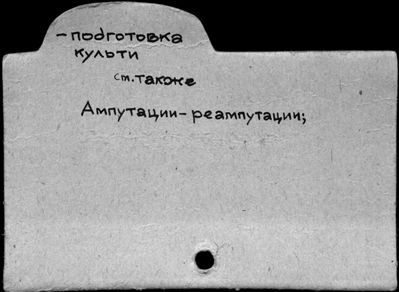 - подготовка
культи
см. также
Ампутации - реампутации;